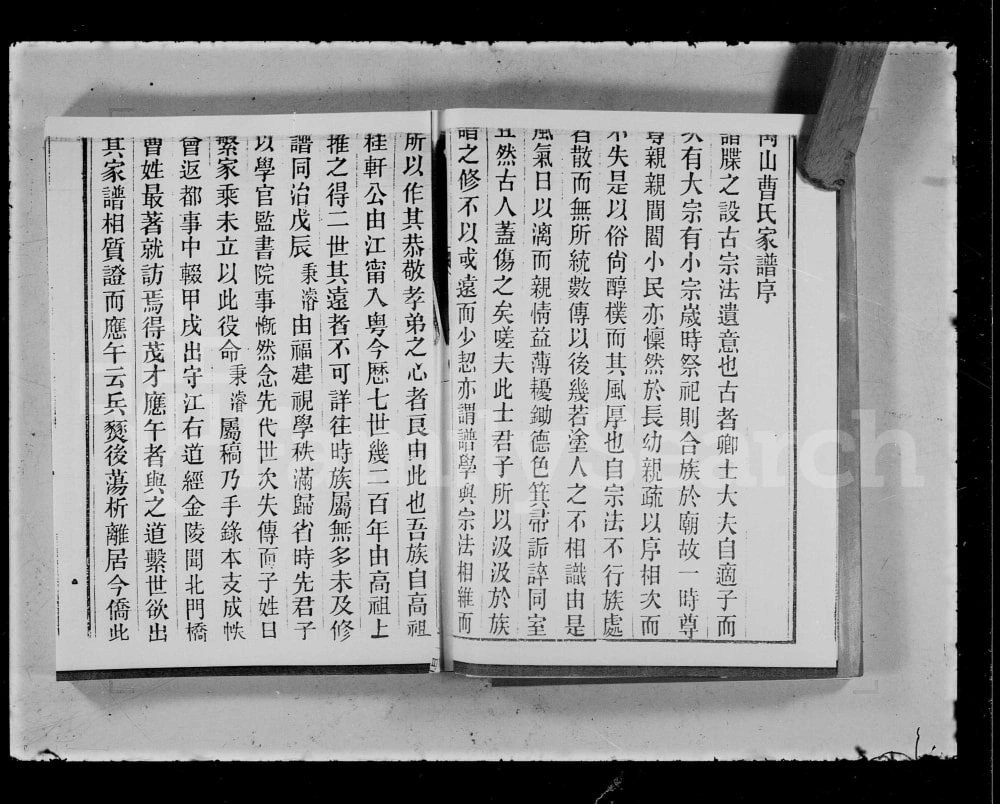 山曹氏家譜序
譜牒之設古宗法遺意也古者鄉士大夫自適子而
有大宗有小宗歲時祭祀則合族於廟故一時尊
尊親親間閭小民亦懍然於長幼親疏以序相次而
不失是以俗尙醇樸而其風厚也自宗法不行族處
者散而無所統數傳以後幾若塗人之不相識由是
風氣日以漓而親情益薄耰鋤德色箕帚誶誶同室
且然古人蓋傷之矣嗟夫此士君子所以汲汲於族
譜之修不以或遠而少恝亦謂譜學與宗法相維而
所以作其恭敬孝弟之心者艮由此也吾族自高祖
桂軒公由江甯入粤今歴七世幾二百年由高祖上
推之得二世其遠者不可詳往時族屬無多未及修
譜同治戊辰秉濬由福建視學秩滿歸省時先君子
以學官監書院事慨然念先代世次失傳而子姓日
繁家乘未立以此役命秉濬屬稿乃手錄本支成帙
曾返都事中輟甲戌出守江右道經金陵聞北門橋
曹姓最著就訪焉得茂才應午者與之道繫世欲出
其家譜相質證而應午云兵燹後蕩析離居今僑此
FamilySearch